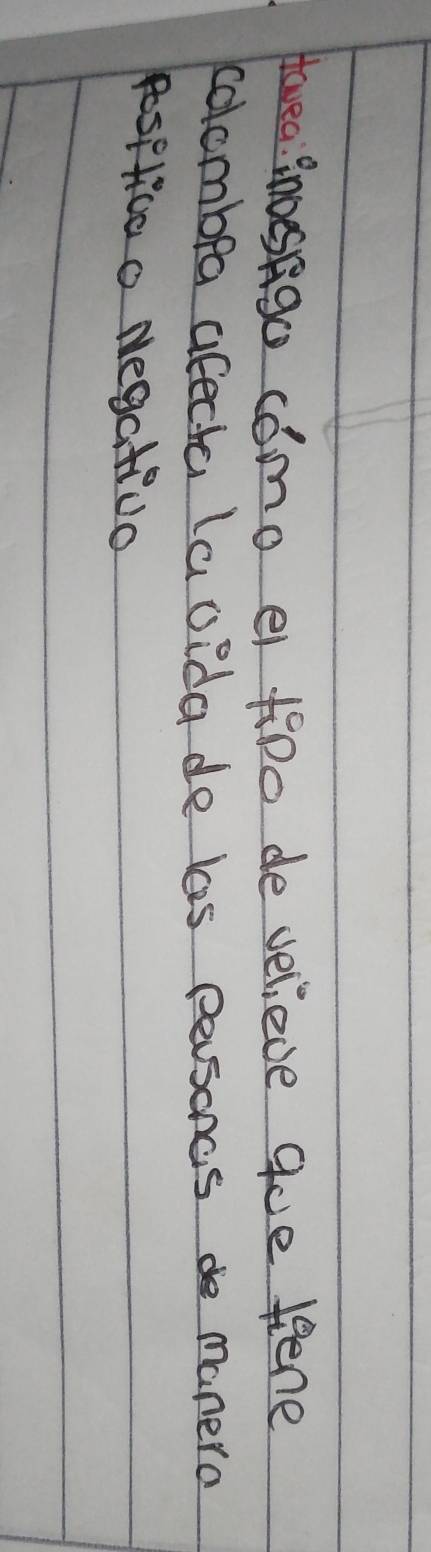 tarea: investigo cómo el tipo de relieve que tiene
Colombia afecta la vida de las personas de manera
Positiva o Negativo